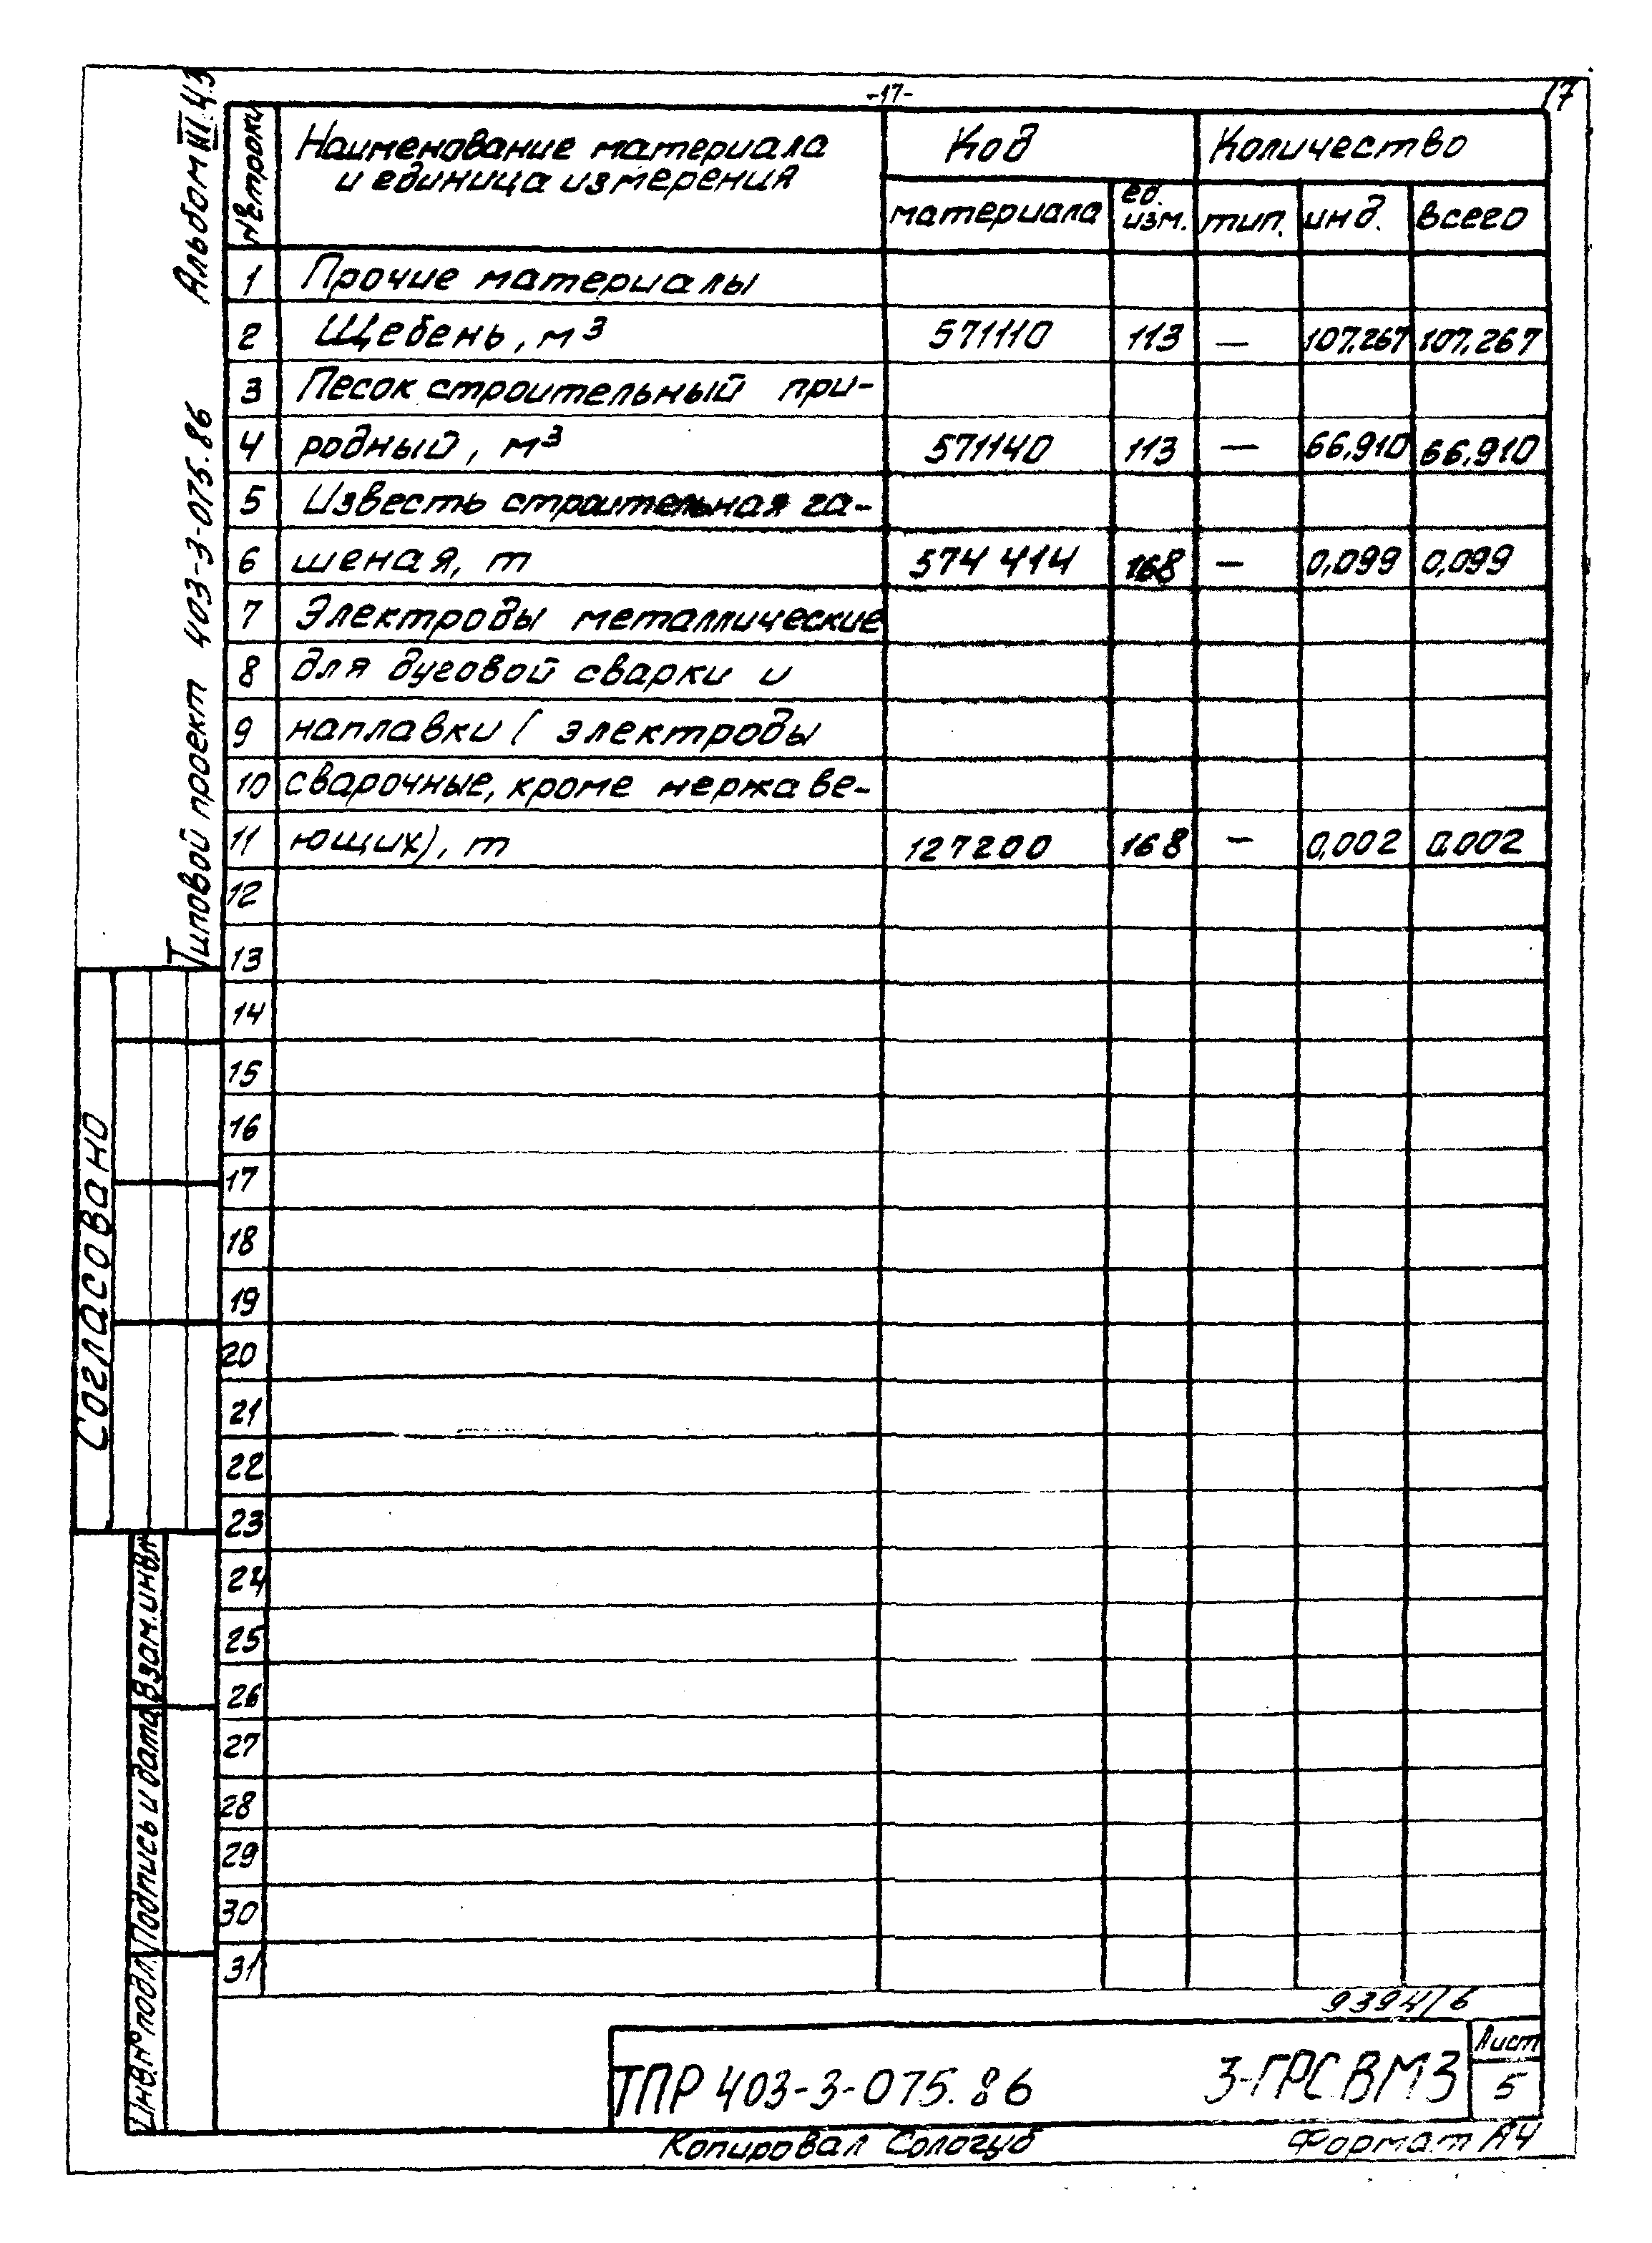 -17-
17
Альбом III ч.3
Типовой проект 403-3-075.86
№ строки
Наименование материала
и единица измерения
Код
Количество
материала
ед.
изм.
тип.
инд.
всего
1 Прочие материалы
2 Щебень, м³ 571110 113 — 107,267 107,267
3 Песок строительный при-
4 родный, м³ 571140 113 — 66,910 66,910
5 Известь строительная га-
6 шеная, т 574 414 168 — 0,099 0,099
7 Электроды металлические
8 для дуговой сварки и
9 наплавки ( электроды
10 сварочные, кроме нержаве-
11 ющих), т 127200 168 — 0,002 0,002
12
13
14
15
16
17
18
19
20
21
22
23
24
25
26
27
28
29
30
31
Согласовано
Взам. инв.№
Подпись и дата
Инв.№ подл.
9394/6
ТПР 403-3-075.86 3-ГРС ВМ3
Лист
5
Копировал Сологуб
Формат А4